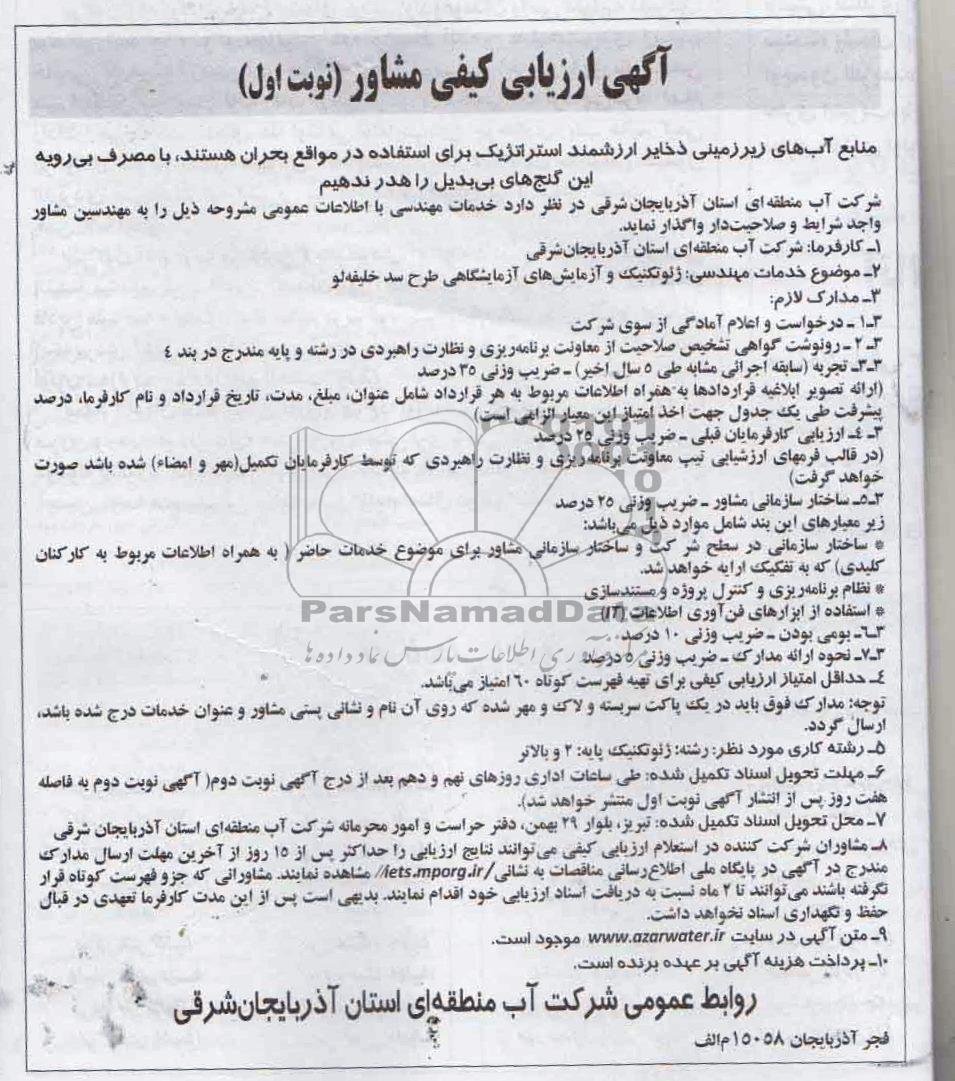 آگهی ارزیابی کیفی مشاور (نوبت اول)
منابع آب‌های زیرزمینی ذخایر ارزشمند استراتژیک برای استفاده در مواقع بحران هستند، با مصرف بی‌رویه
این گنج‌های بی‌بدیل را هدر ندهیم
شرکت آب منطقه‌ای استان آذربایجان شرقی در نظر دارد خدمات مهندسی با اطلاعات عمومی مشروحه ذیل را به مهندسین مشاور
واجد شرایط و صلاحیت‌دار واگذار نماید.
۱ـ کارفرما: شرکت آب منطقه‌ای استان آذربایجان‌شرقی
۲ـ موضوع خدمات مهندسی: ژئوتکنیک و آزمایش‌های آزمایشگاهی طرح سد خلیفه‌لو
۳ـ مدارک لازم:
۳ـ۱ ـ درخواست و اعلام آمادگی از سوی شرکت
۳ـ۲ ـ رونوشت گواهی تشخیص صلاحیت از معاونت برنامه‌ریزی و نظارت راهبردی در رشته و پایه مندرج در بند ٤
۳ـ۳ـ تجربه (سابقه اجرائی مشابه طی ۵ سال اخیر) ـ ضریب وزنی ۳۵ درصد
(ارائه تصویر ابلاغیه قراردادها به همراه اطلاعات مربوط به هر قرارداد شامل عنوان، مبلغ، مدت، تاریخ قرارداد و نام کارفرما، درصد
پیشرفت طی یک جدول جهت اخذ امتیاز این معیار الزامی است)
۳ـ ٤ـ ارزیابی کارفرمایان قبلی ـ ضریب وزنی ۲۵ درصد
(در قالب فرمهای ارزشیابی تیپ معاونت برنامه‌ریزی و نظارت راهبردی که توسط کارفرمایان تکمیل(مهر و امضاء) شده باشد صورت
خواهد گرفت)
۳ـ۵ـ ساختار سازمانی مشاور ـ ضریب وزنی ۲۵ درصد
زیر معیارهای این بند شامل موارد ذیل می‌باشد:
* ساختار سازمانی در سطح شرکت و ساختار سازمانی مشاور برای موضوع خدمات حاضر ( به همراه اطلاعات مربوط به کارکنان
کلیدی) که به تفکیک ارایه خواهد شد.
* نظام برنامه‌ریزی و کنترل پروژه و مستندسازی
* استفاده از ابزارهای فن‌آوری اطلاعات (IT)
ParsNamadData
۳ـ٦ـ بومی بودن ـ ضریب وزنی ۱۰ درصد
۳ـ۷ـ نحوه ارائه مدارک ـ ضریب وزنی ۵ درصد
٤ـ حداقل امتیاز ارزیابی کیفی برای تهیه فهرست کوتاه ٦۰ امتیاز می‌باشد.
توجه: مدارک فوق باید در یک پاکت سربسته و لاک و مهر شده که روی آن نام و نشانی پستی مشاور و عنوان خدمات درج شده باشد،
ارسال گردد.
۵ـ رشته کاری مورد نظر: رشته: ژئوتکنیک پایه: ۲ و بالاتر
٦ـ مهلت تحویل اسناد تکمیل شده: طی ساعات اداری روزهای نهم و دهم بعد از درج آگهی نوبت دوم( آگهی نوبت دوم به فاصله
هفت روز پس از انتشار آگهی نوبت اول منتشر خواهد شد).
۷ـ محل تحویل اسناد تکمیل شده: تبریز، بلوار ۲۹ بهمن، دفتر حراست و امور محرمانه شرکت آب منطقه‌ای استان آذربایجان شرقی
۸ـ مشاوران شرکت کننده در استعلام ارزیابی کیفی می‌توانند نتایج ارزیابی را حداکثر پس از ۱۵ روز از آخرین مهلت ارسال مدارک
مندرج در آگهی در پایگاه ملی اطلاع‌رسانی مناقصات به نشانی/iets.mporg.ir// مشاهده نمایند. مشاورانی که جزو فهرست کوتاه قرار
نگرفته باشند می‌توانند تا ۲ ماه نسبت به دریافت اسناد ارزیابی خود اقدام نمایند. بدیهی است پس از این مدت کارفرما تعهدی در قبال
حفظ و نگهداری اسناد نخواهد داشت.
۹ـ متن آگهی در سایت www.azarwater.ir موجود است.
۱۰ـ پرداخت هزینه آگهی بر عهده برنده است.
روابط عمومی شرکت آب منطقه‌ای استان آذربایجان‌شرقی
فجر آذربایجان ۱۵۰۵۸م‌الف